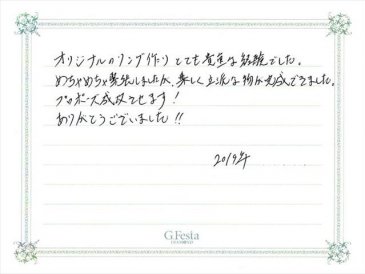 オリジナルのリング作りとても貴重な経験でした。
めちゃめちゃ緊張しましたが、楽しく立派な物が完成できました。
プロポーズ成功させます!
ありがとうございました!!
2019年
G.Festa